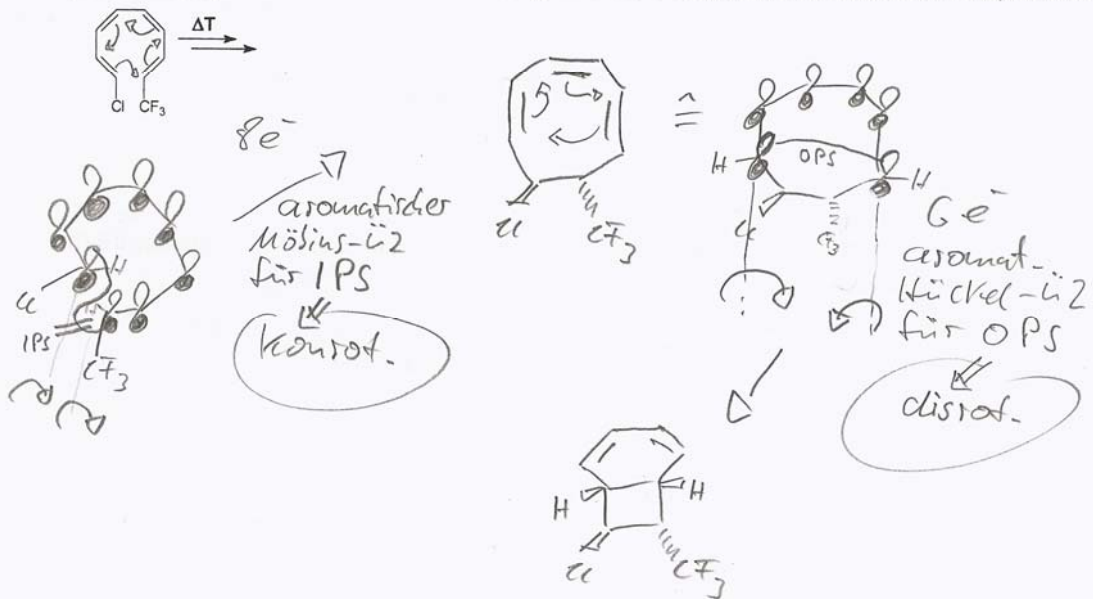 ΔT
Cl CF3
8 e⁻
aromatischer
Möbius-ÜZ
für IPS
konrot.
Cl
H
IPS
CF3
Cl
CF3
≙
H
OPS
H
Cl
CF3
6 e⁻
aromat.
Hückel-ÜZ
für OPS
disrot.
H
H
Cl
CF3